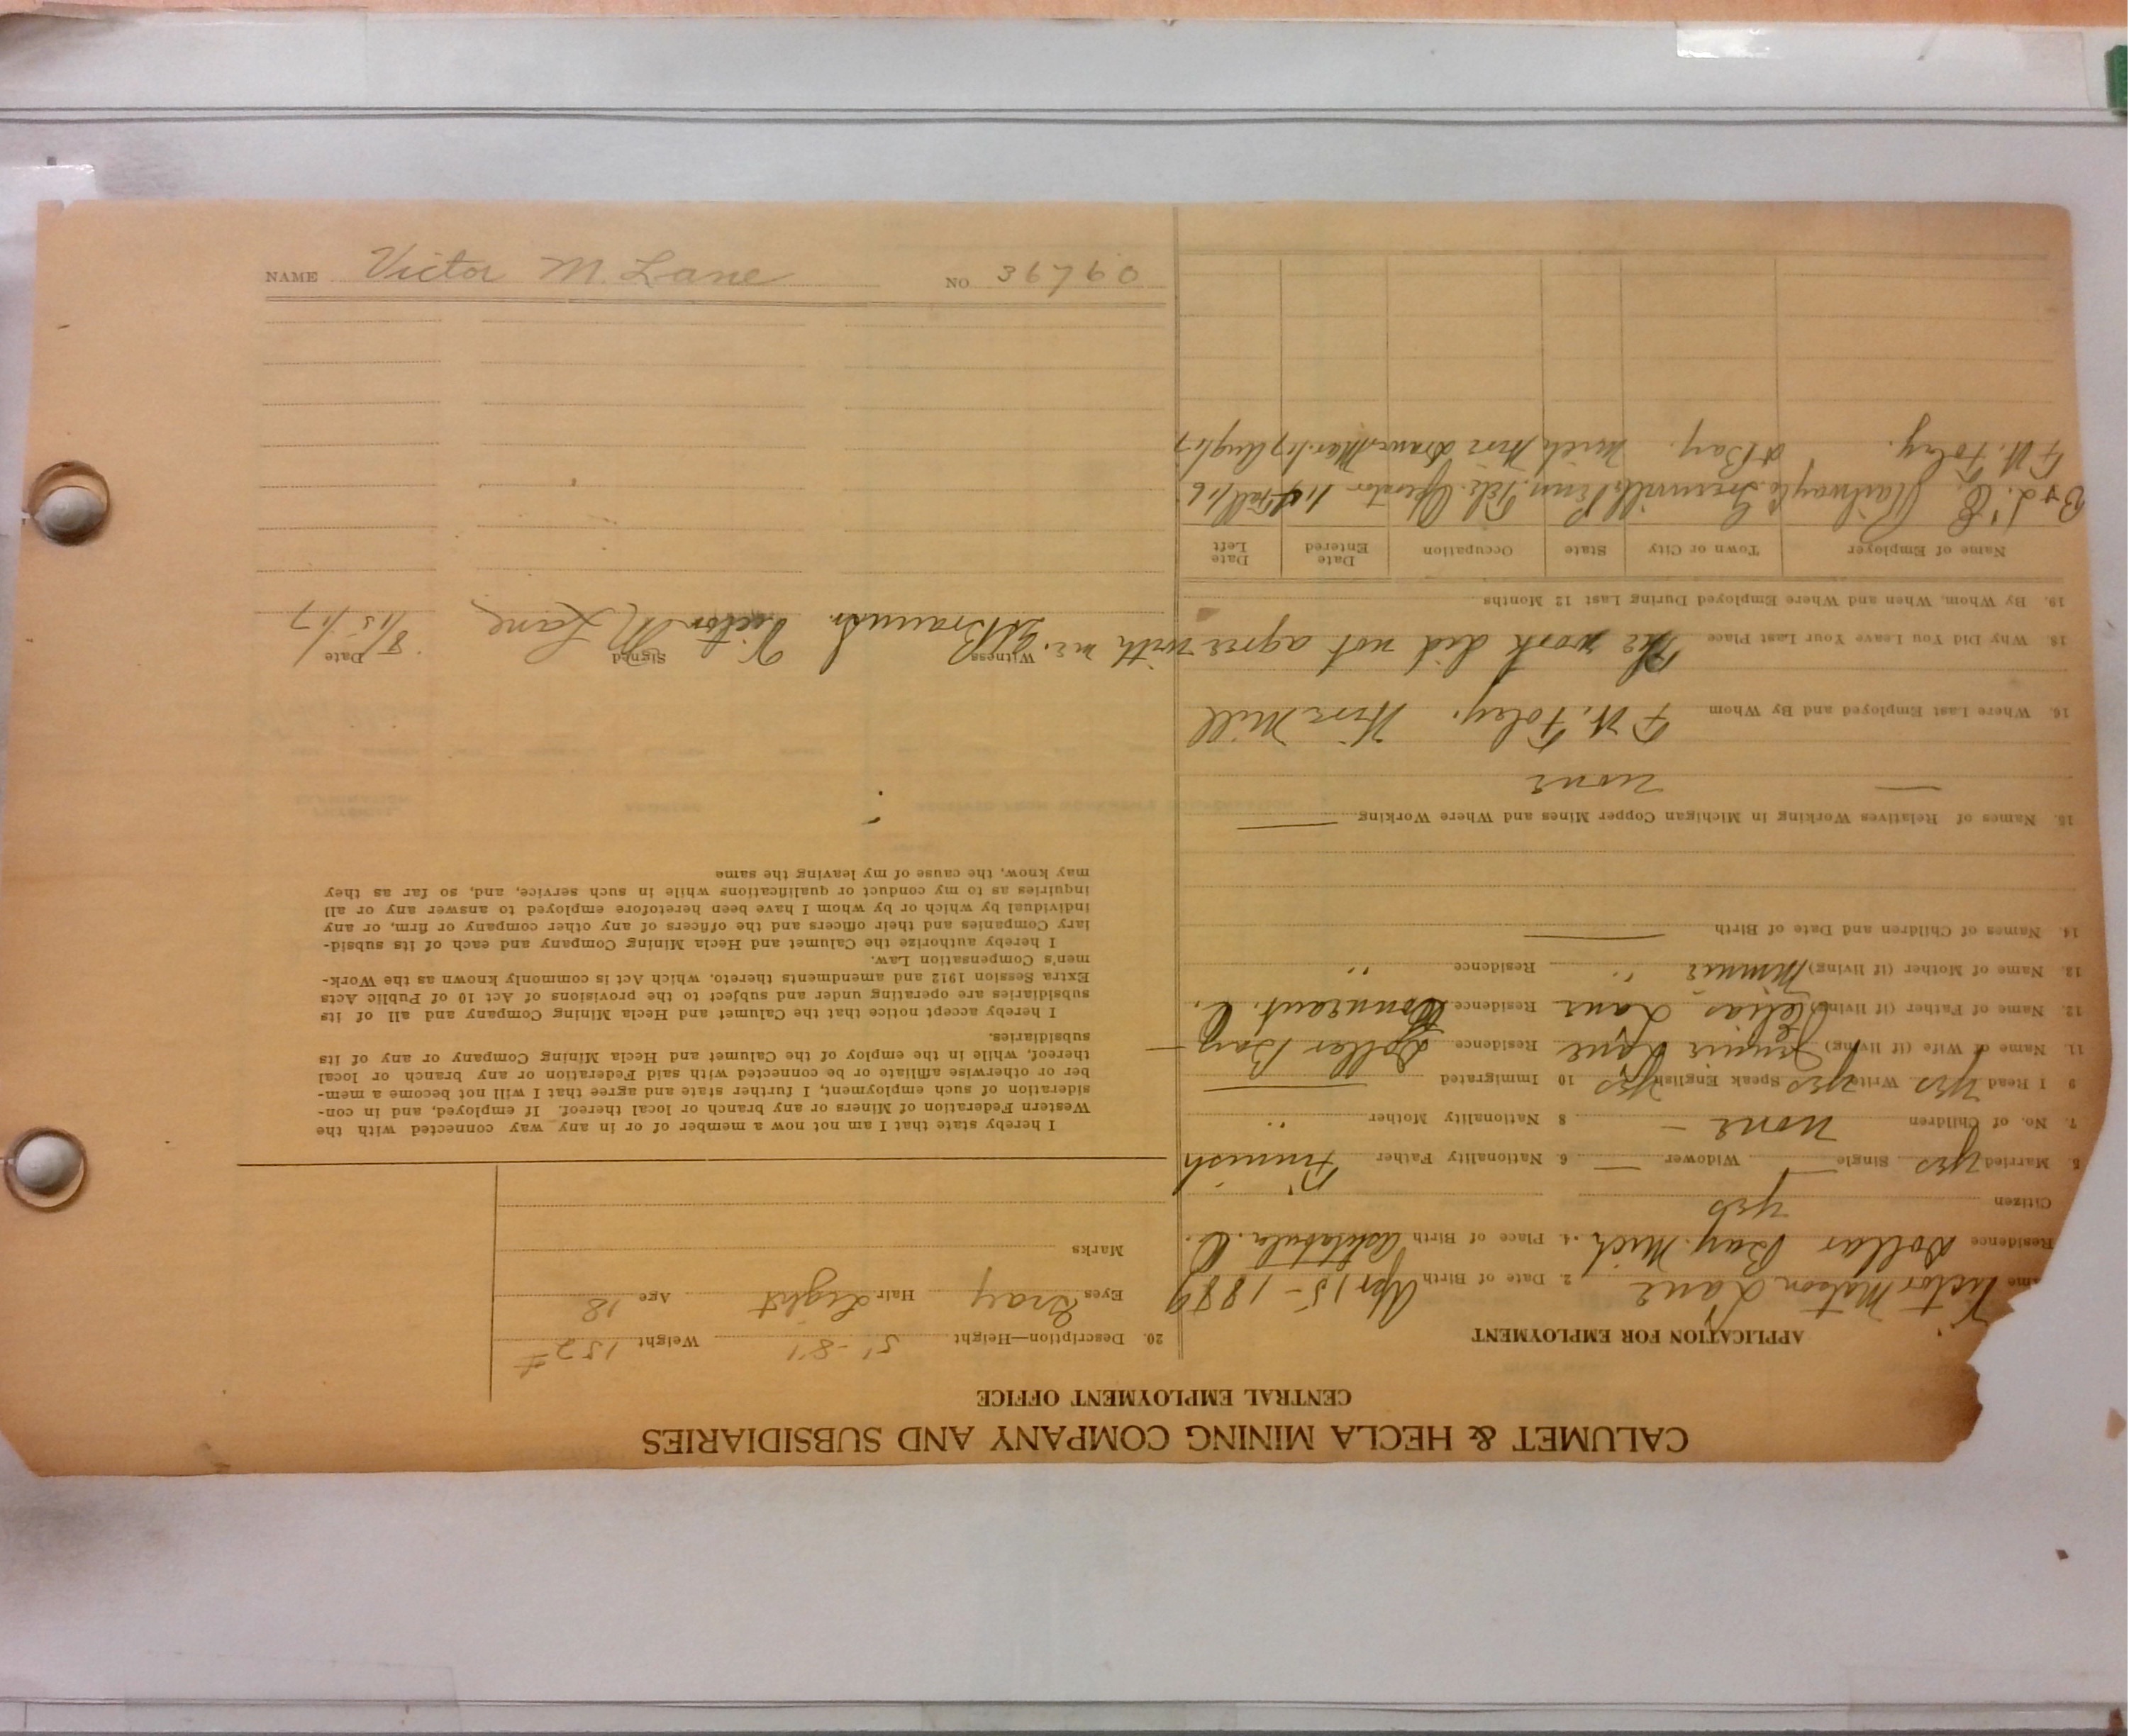 CALUMET & HECLA MINING COMPANY AND SUBSIDIARIES
CENTRAL EMPLOYMENT OFFICE
APPLICATION FOR EMPLOYMENT
Victor Matson Lane 2. Date of Birth Apr 15 - 1889
Residence Dollar Bay. Mich. 4. Place of Birth Ashtabula. O.
Citizen yes
5. Married yes Single — Widower — 6. Nationality Father Finnish
7. No. of Children none — 8 Nationality Mother "
9 I Read yes Write yes Speak English yes 10 Immigrated —
11. Name of Wife (if living) Lane Residence Dollar Bay —
12. Name of Father (if living) Elias Lane Residence Conneaut. O.
13. Name of Mother (if living) Minnie " Residence "
14. Names of Children and Date of Birth —
15. Names of Relatives Working in Michigan Copper Mines and Where Working —
— none
16. Where Last Employed and By Whom F. W. Foley. Wire Mill
18. Why Did You Leave Your Last Place The work did not agree with me.
19. By Whom, When and Where Employed During Last 12 Months
Name of Employer Town or City State Occupation Date Entered Date Left
B & L. E. Railway Co. Greenville Penn. Tele. Operator Fall/16
F. W. Foley. D Bay. Mich. Wire Drawer Mar/17 Aug/17
20. Description—Height 5'-8" Weight 152#
Eyes Gray Hair Light Age 18
Marks
I hereby state that I am not now a member of or in any way connected with the
Western Federation of Miners or any branch or local thereof. If employed, and in con-
sideration of such employment, I further state and agree that I will not become a mem-
ber or otherwise affiliate or be connected with said Federation or any branch or local
thereof, while in the employ of the Calumet and Hecla Mining Company or any of its
subsidiaries.
I hereby accept notice that the Calumet and Hecla Mining Company and all of its
subsidiaries are operating under and subject to the provisions of Act 10 of Public Acts
Extra Session 1912 and amendments thereto, which Act is commonly known as the Work-
men's Compensation Law.
I hereby authorize the Calumet and Hecla Mining Company and each of its subsid-
iary Companies and their officers and the officers of any other company or firm, or any
individual by which or by whom I have been heretofore employed to answer any or all
inquiries as to my conduct or qualifications while in such service, and, so far as they
may know, the cause of my leaving the same
Witness Signed Date
Victor M Lane 8/15/17
NAME Victor M. Lane NO 36760